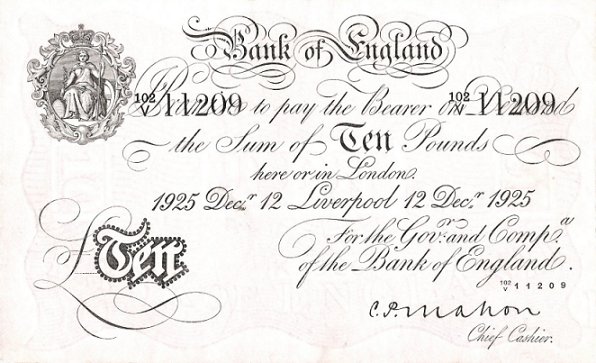 Bank of England
Promise to pay the Bearer on Demand
102/V 11209 102/V 11209
the Sum of Ten Pounds
here or in London.
1925 Decr. 12 Liverpool 12 Decr. 1925
For the Govr. and Compa.
of the Bank of England.
£Ten
102/V 11209
C.P. Mahon
Chief Cashier.